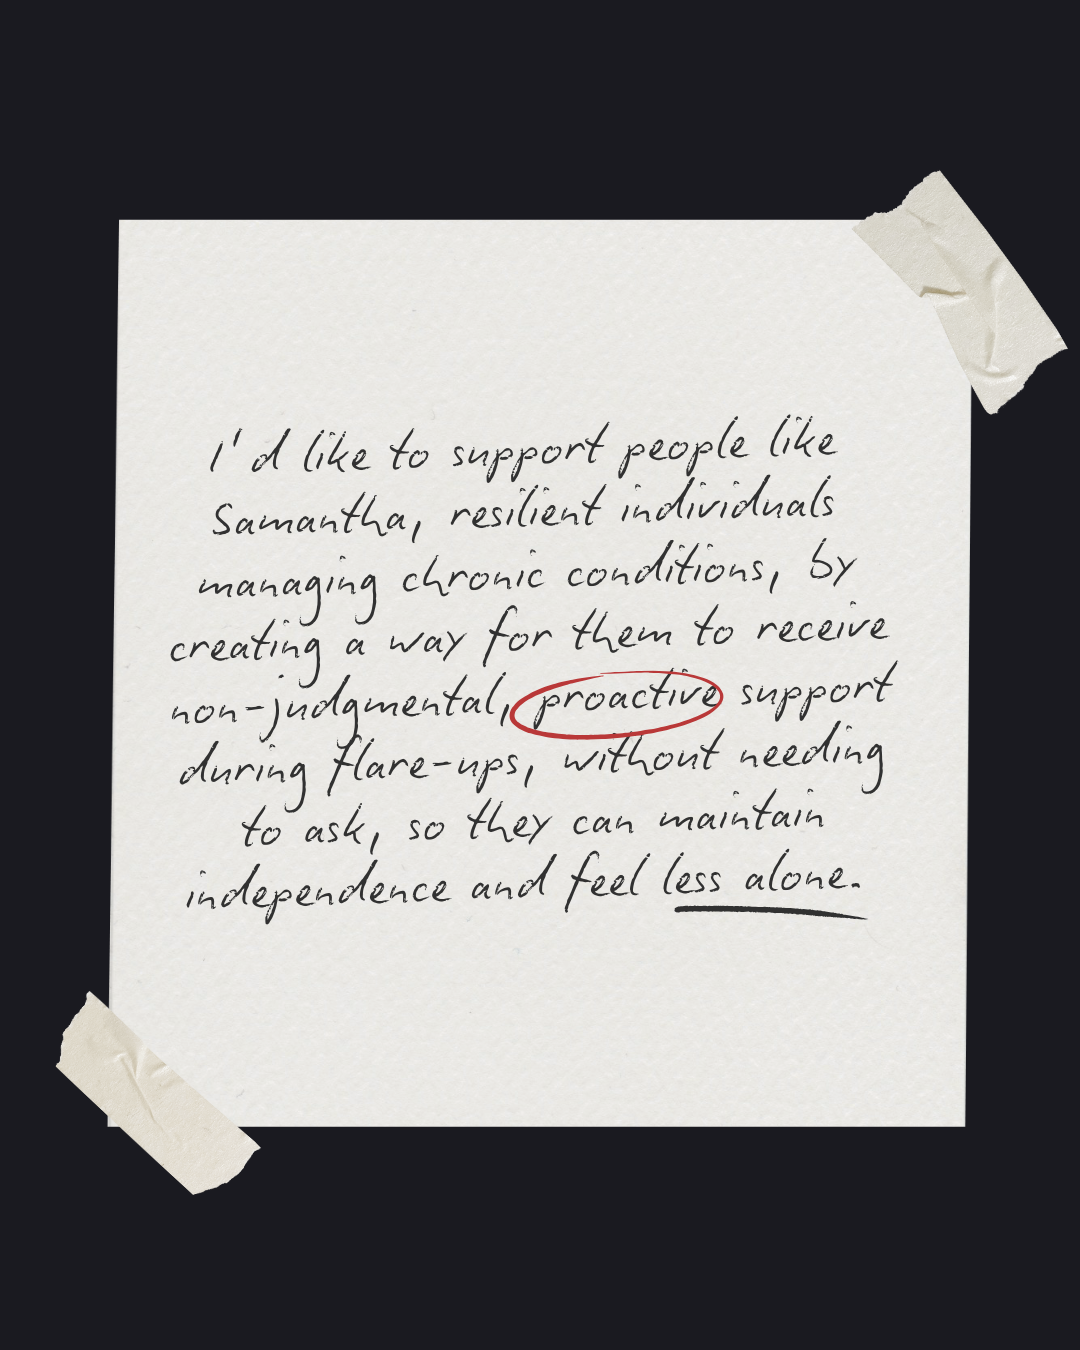 I'd like to support people like
Samantha, resilient individuals
managing chronic conditions, by
creating a way for them to receive
non-judgmental, proactive support
during flare-ups, without needing
to ask, so they can maintain
independence and feel less alone.